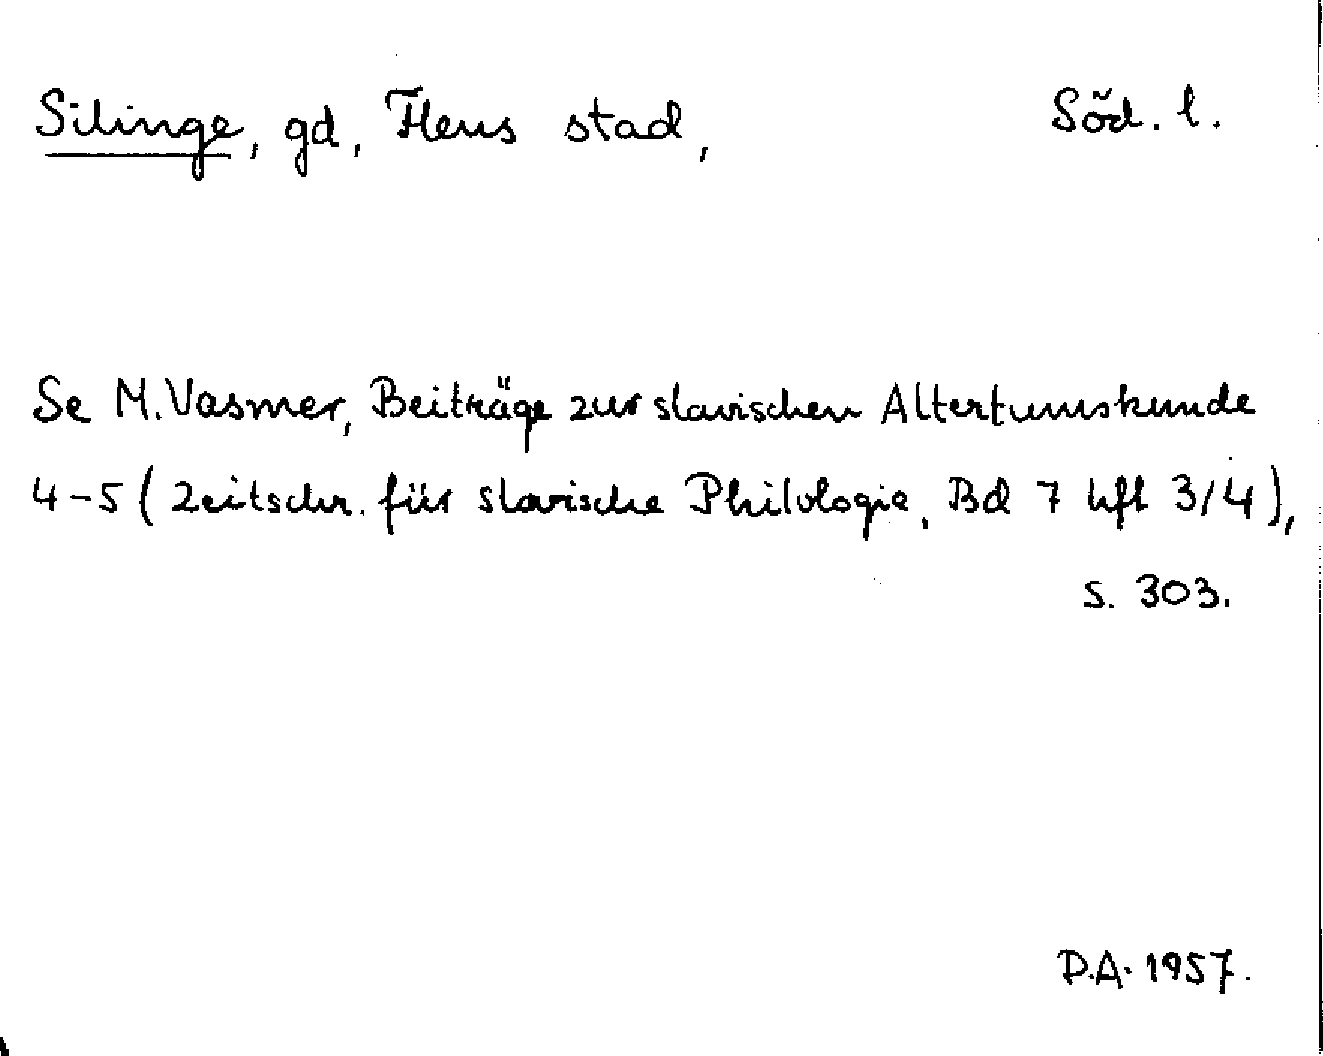 Silinge, gd, Flens stad, Söd. l.
Se M. Vasmer, Beiträge zur slavischen Altertumskunde
4-5 (Zeitschr. für slavische Philologie, Bd 7 hft 3/4),
s. 303.
D.A. 1957.